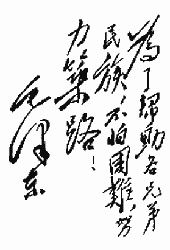 为了帮助各兄弟
民族，不怕困难，努
力筑路！
毛泽东